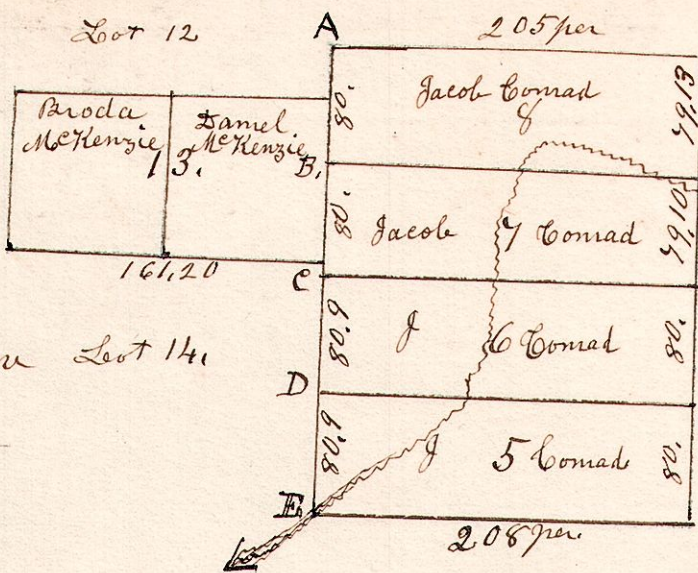 Lot 12
A
205 per
Broda
McKenzie
Daniel
McKenzie
13.
80.
Jacob Conrad
8
79,13
B.
80.
Jacob 7 Conrad
79,10
161,20
C
80.9
J 6 Conrad
80.
Lot 14,
D
80.9
J 5 Conrad
80.
E.
208 per.